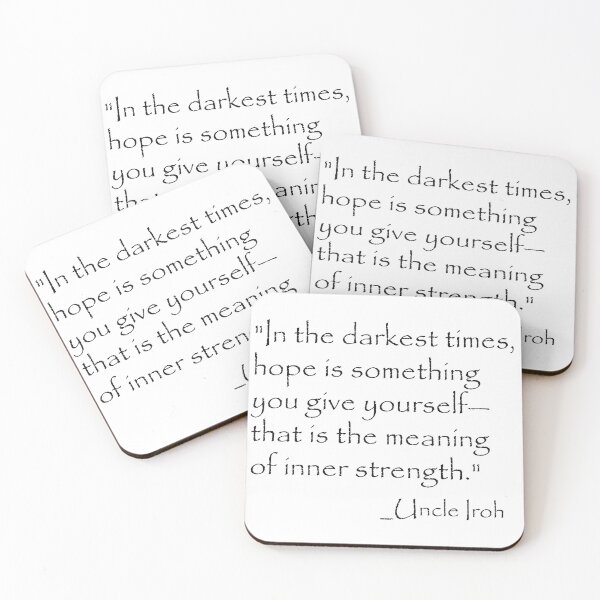 "In the darkest times,
hope is something
you give yourself—
that is the meaning
"In the darkest times,
hope is something
you give yourself—
that is the meaning
of inner strength."
Iroh
"In the darkest times,
hope is something
you give yourself—
that is the meaning
of inner
"In the darkest times,
hope is something
you give yourself—
that is the meaning
of inner strength."
_Uncle Iroh